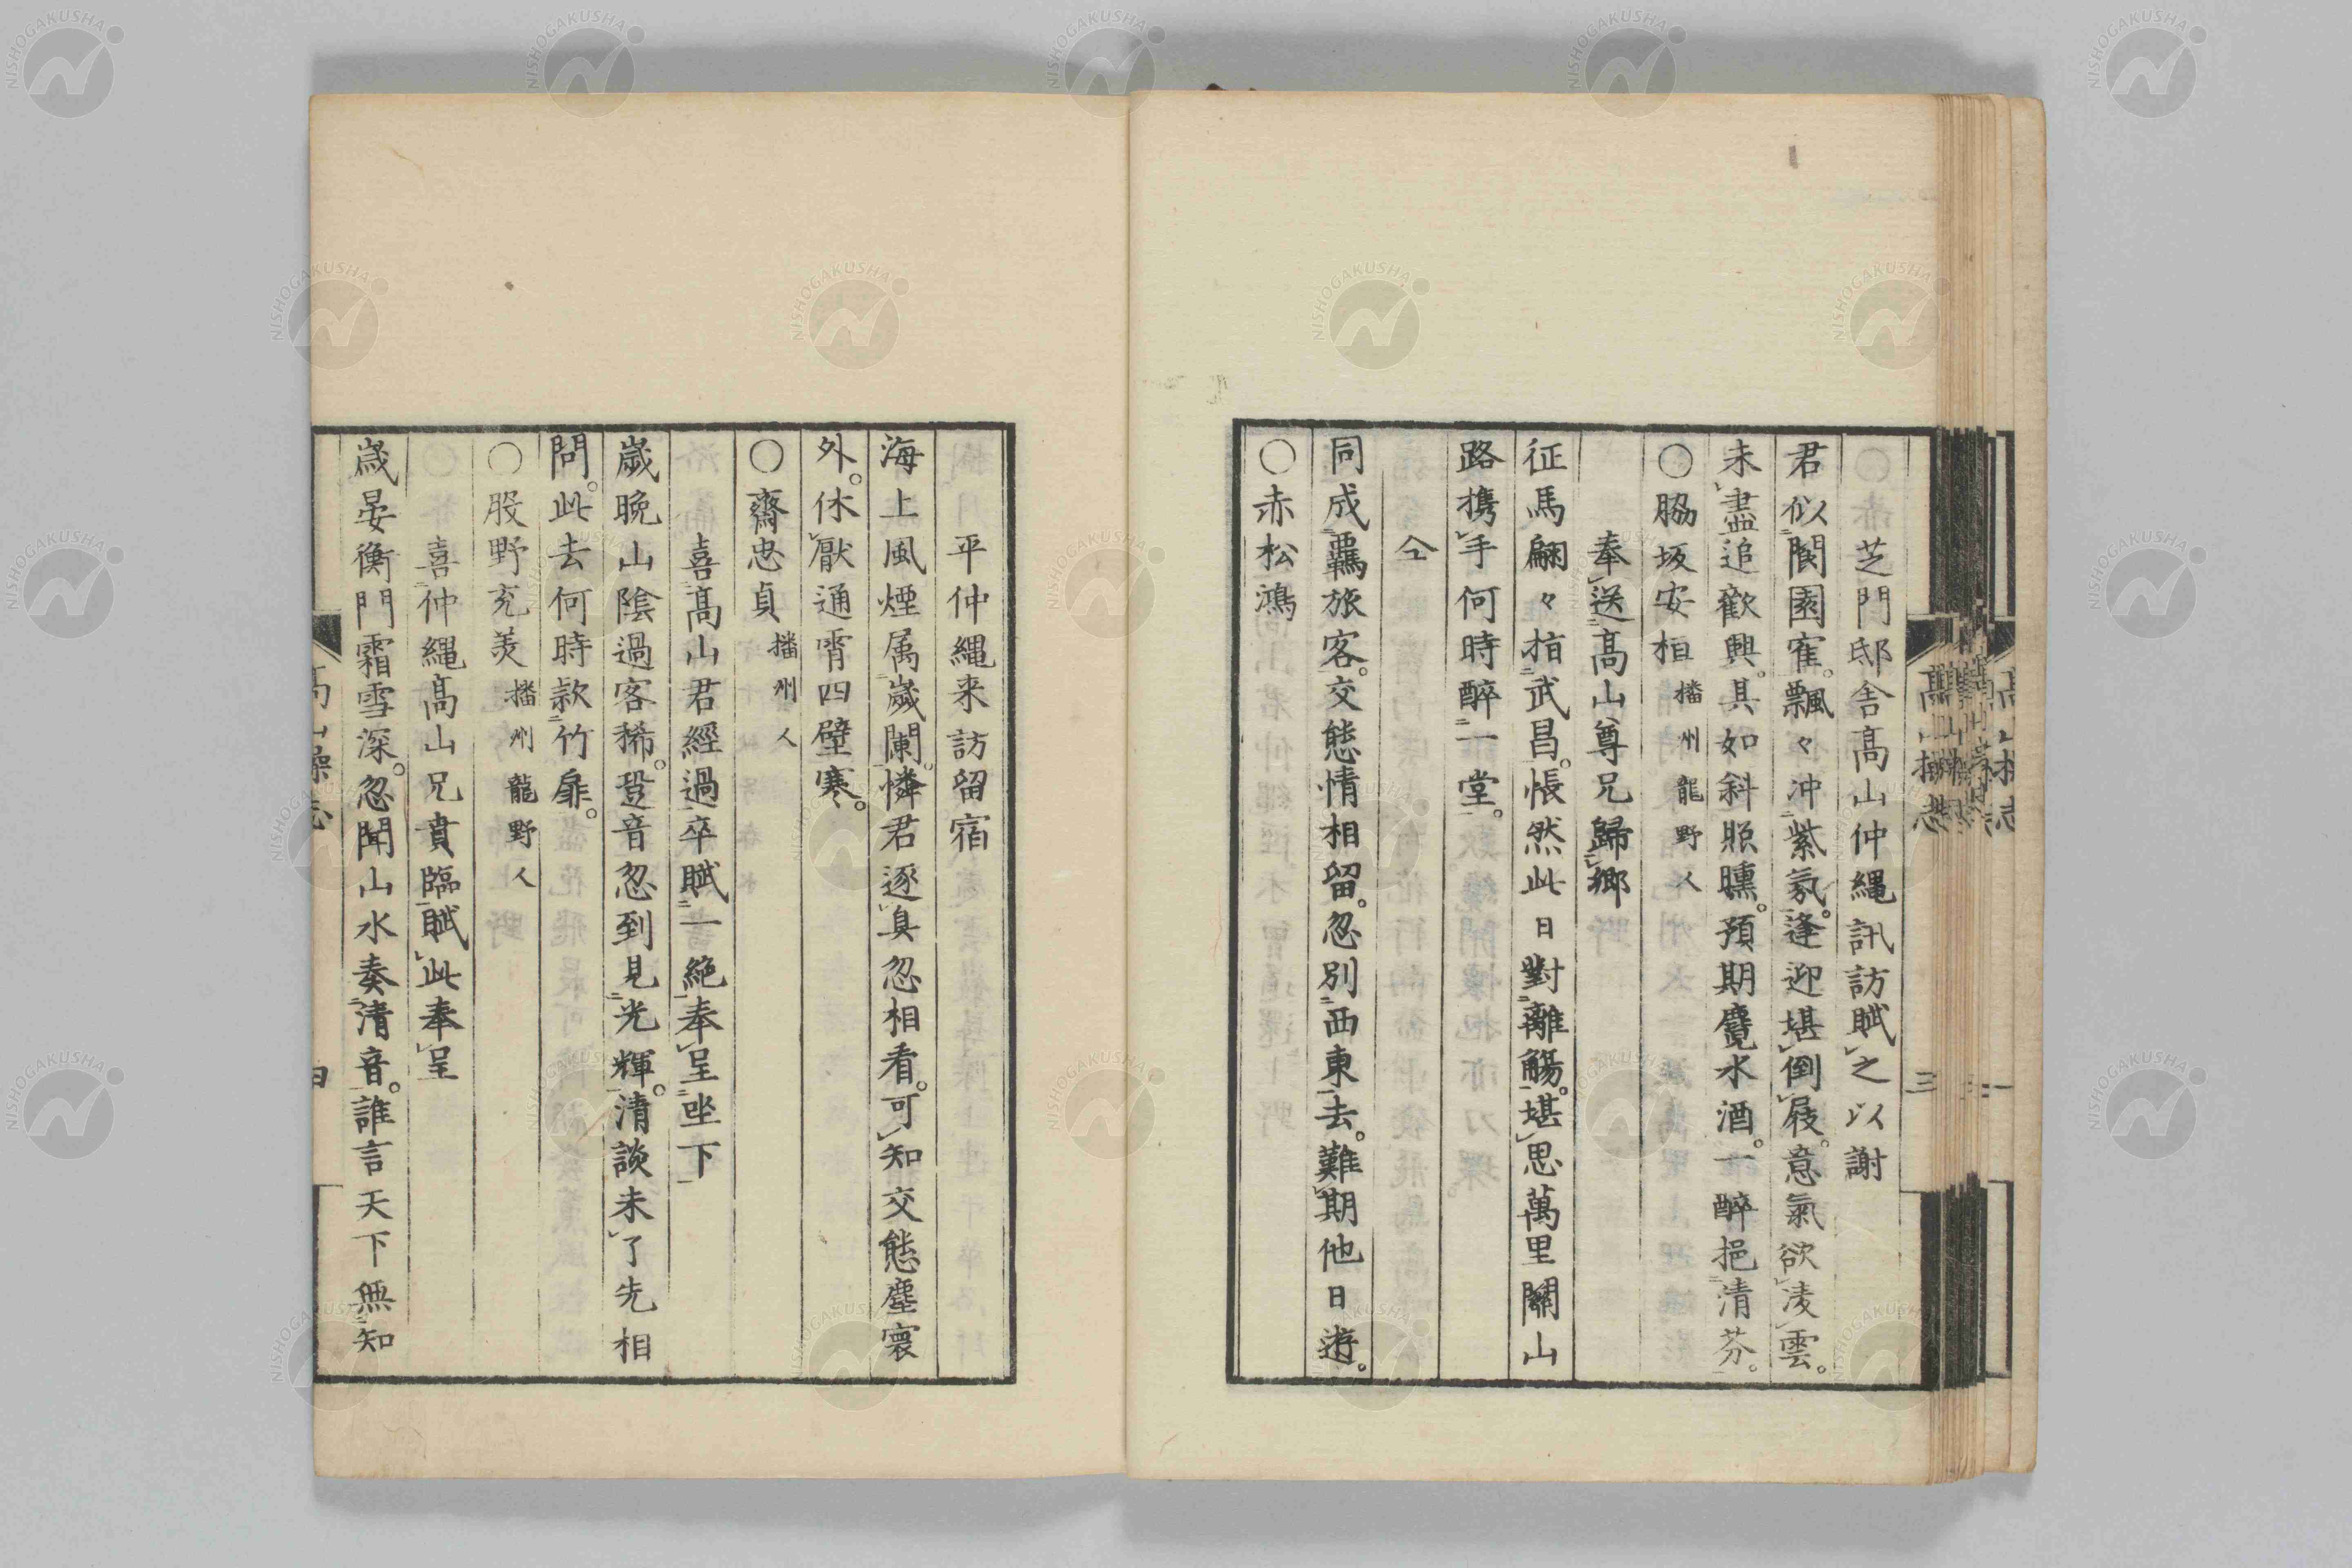 芝門邸舎髙山仲縄訊訪賦之以謝
君似閬園寉。飄々冲紫氛。逢迎堪倒屐。意氣欲凌雲。
未盡追歡興。其如斜照曛。預期麿水酒。一醉挹清芬。
〇脇坂安桓 播州龍野人
奉送髙山尊兄歸郷
征馬翩々指武昌。悵然此日對離觴。堪思萬里關山
路携手何時醉一堂。
仝
同成羈旅客。交態情相留。忽別西東去。難期他日遊。
〇赤松鴻
平仲縄来訪留宿
海上風煙属歲闌。憐君逐臭忽相看。可知交態塵寰
外。休厭通霄四壁寒。
〇齋忠貞 播州人
喜髙山君經過卒賦一絶奉呈坐下
歲晩山陰過客稀。跫音忽到見光輝。清談未了先相
問。此去何時款竹扉。
〇股野充美 播州龍野人
喜仲縄髙山兄賁臨賦此奉呈
歲晏衡門霜雪深。忽聞山水奏清音。誰言天下無知
髙山操志
三
NISHOGAKUSHA